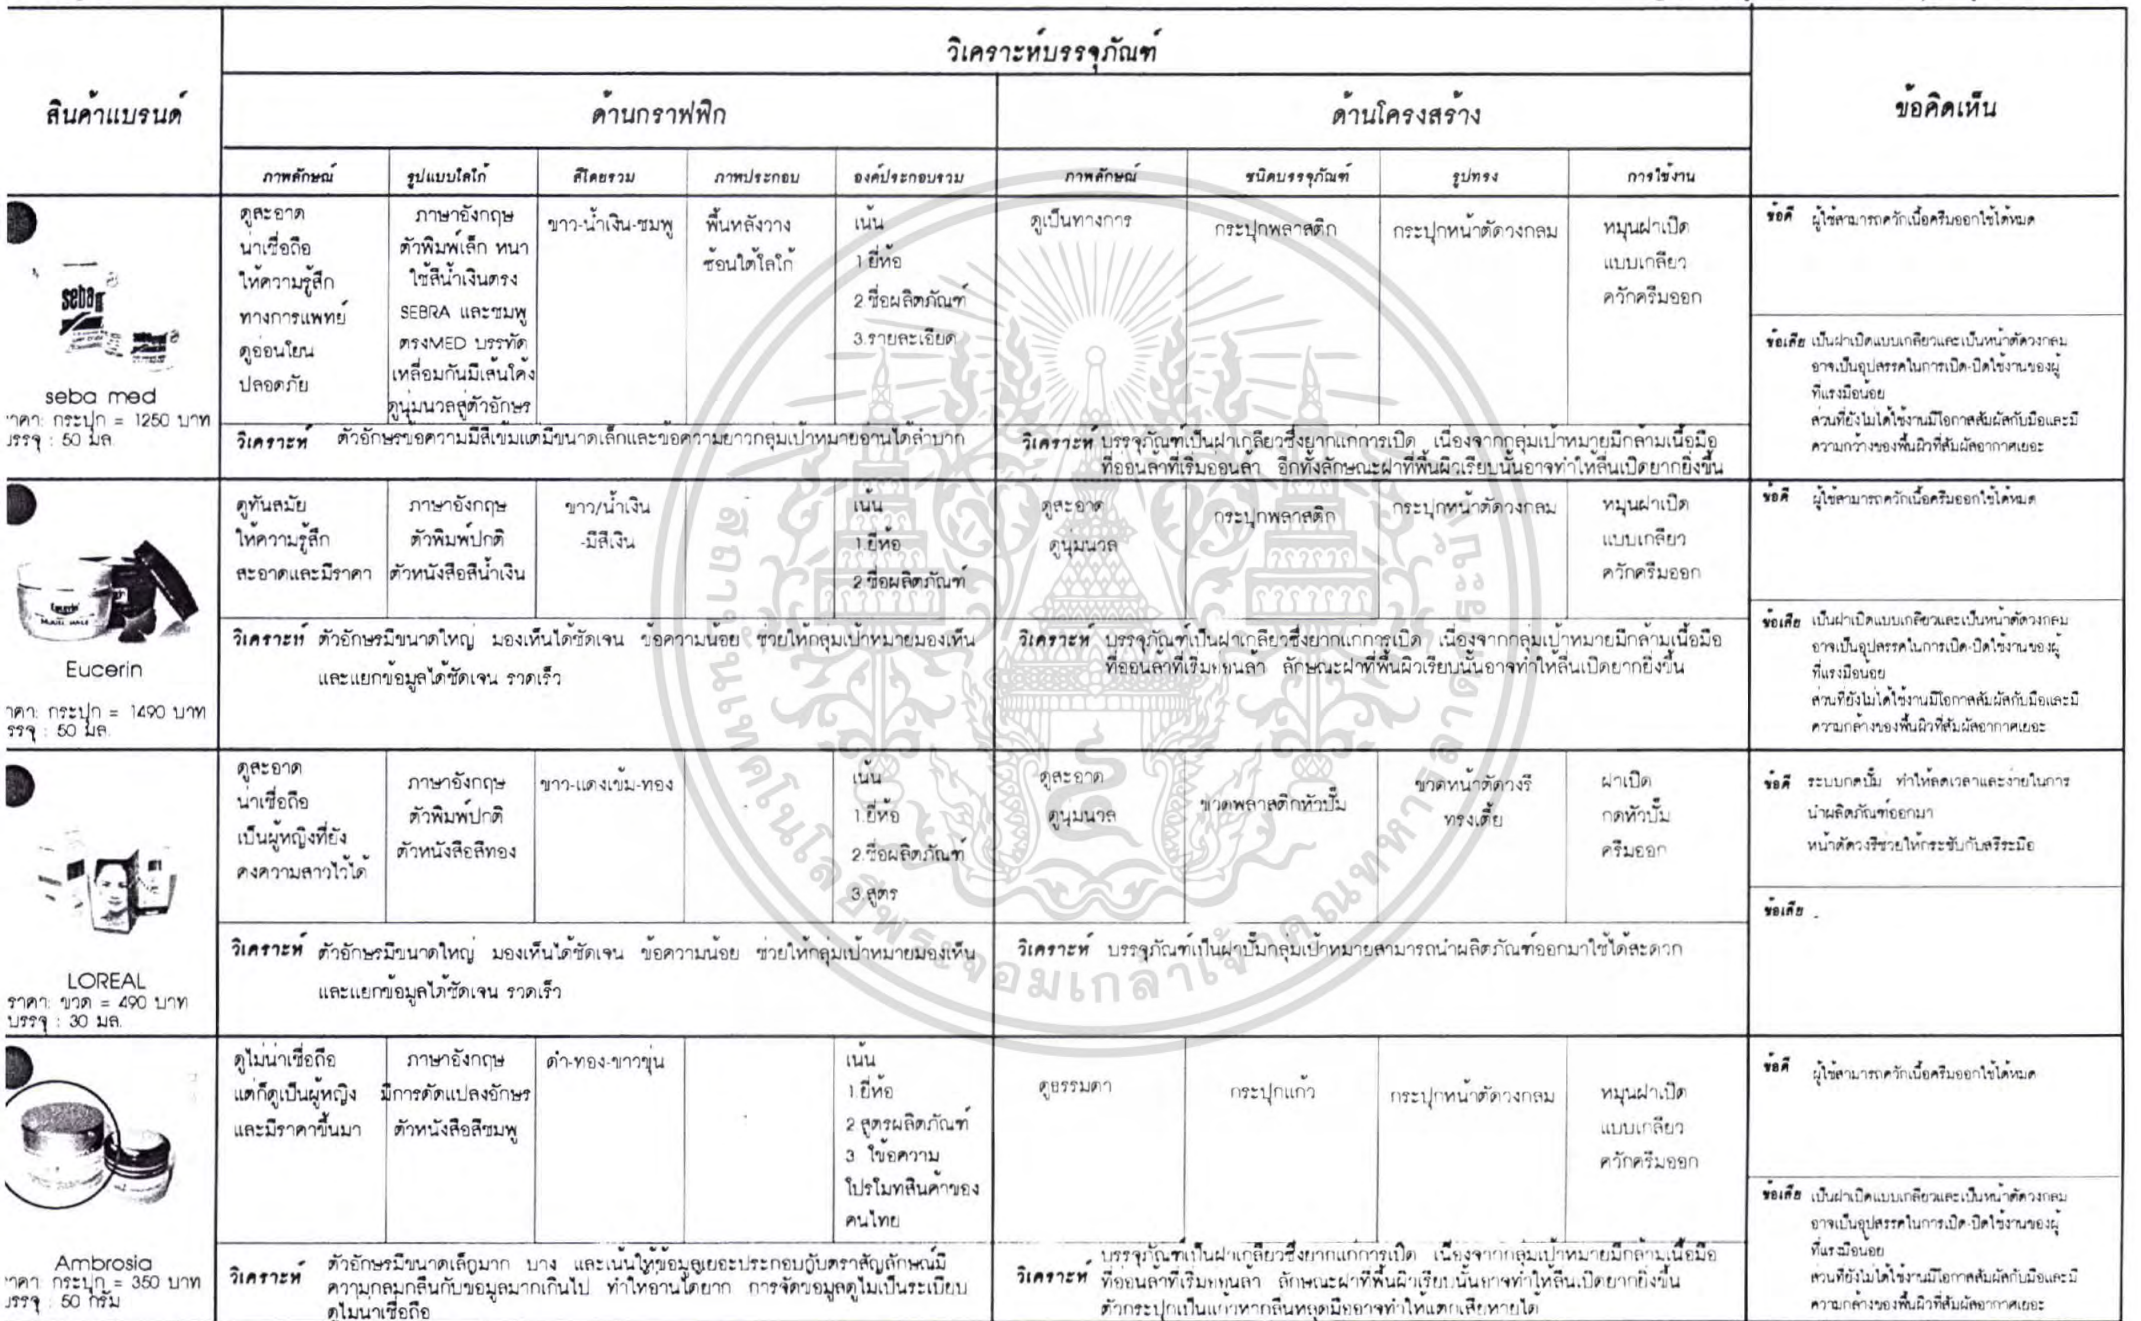 วิเคราะห์บรรจุภัณฑ์
สินค้าแบรนด์
ด้านกราฟฟิก
ด้านโครงสร้าง
ข้อคิดเห็น
ภาพลักษณ์
รูปแบบโลโก้
สีโดยรวม
ภาพประกอบ
องค์ประกอบรวม
ภาพลักษณ์
ชนิดบรรจุภัณฑ์
รูปทรง
การใช้งาน
seba med
ราคา: กระปุก = 1250 บาท
บรรจุ : 50 มล.
ดูสะอาด
น่าเชื่อถือ
ให้ความรู้สึก
ทางการแพทย์
ดูอ่อนโยน
ปลอดภัย
ภาษาอังกฤษ
ตัวพิมพ์เล็ก หนา
ใช้สีน้ำเงินตรง
SEBRA และชมพู
ตรงMED บรรทัด
เหลื่อมกันมีเส้นโค้ง
ดูนุ่มนวลสู่ตัวอักษร
ขาว-น้ำเงิน-ชมพู
พื้นหลังวาง
ซ้อนใต้โลโก้
เน้น
1 ยี่ห้อ
2 ชื่อผลิตภัณฑ์
3.รายละเอียด
ดูเป็นทางการ
กระปุกพลาสติก
กระปุกหน้าตัดวงกลม
หมุนฝาเปิด
แบบเกลียว
ควักครีมออก
ข้อดี ผู้ใช้สามารถควักเนื้อครีมออกใช้ได้หมด
ข้อเสีย เป็นฝาเปิดแบบเกลียวและเป็นหน้าตัดวงกลม
อาจเป็นอุปสรรคในการเปิด-ปิดใช้งานของผู้
ที่แรงมือน้อย
ส่วนที่ยังไม่ได้ใช้งานมีโอกาสสัมผัสกับมือและมี
ความกว้างของพื้นผิวที่สัมผัสอากาศเยอะ
วิเคราะห์ ตัวอักษรข้อความมีสีเข้มแต่มีขนาดเล็กและข้อความยาวกลุ่มเป้าหมายอ่านได้ลำบาก
วิเคราะห์ บรรจุภัณฑ์เป็นฝาเกลียวซึ่งยากแก่การเปิด เนื่องจากกลุ่มเป้าหมายมีกล้ามเนื้อมือ
ที่อ่อนล้าที่เริ่มอ่อนล้า อีกทั้งลักษณะฝาที่พื้นผิวเรียบนั้นอาจทำให้ลื่นเปิดยากยิ่งขึ้น
Eucerin
ราคา: กระปุก = 1490 บาท
บรรจุ : 50 มล.
ดูทันสมัย
ให้ความรู้สึก
สะอาดและมีราคา
ภาษาอังกฤษ
ตัวพิมพ์ปกติ
ตัวหนังสือสีน้ำเงิน
ขาว/น้ำเงิน
-มีสีเงิน
เน้น
1.ยี่ห้อ
2 ชื่อผลิตภัณฑ์
ดูสะอาด
ดูนุ่มนวล
กระปุกพลาสติก
กระปุกหน้าตัดวงกลม
หมุนฝาเปิด
แบบเกลียว
ควักครีมออก
ข้อดี ผู้ใช้สามารถควักเนื้อครีมออกใช้ได้หมด
ข้อเสีย เป็นฝาเปิดแบบเกลียวและเป็นหน้าตัดวงกลม
อาจเป็นอุปสรรคในการเปิด-ปิดใช้งานของผู้
ที่แรงมือน้อย
ส่วนที่ยังไม่ได้ใช้งานมีโอกาสสัมผัสกับมือและมี
ความกล้างของพื้นผิวที่สัมผัสอากาศเยอะ
วิเคราะห์ ตัวอักษรมีขนาดใหญ่ มองเห็นได้ชัดเจน ข้อความน้อย ช่วยให้กลุ่มเป้าหมายมองเห็น
และแยกข้อมูลได้ชัดเจน รวดเร็ว
วิเคราะห์ บรรจุภัณฑ์เป็นฝาเกลียวซึ่งยากแก่การเปิด เนื่องจากกลุ่มเป้าหมายมีกล้ามเนื้อมือ
ที่อ่อนล้าที่เริ่มอ่อนล้า ลักษณะฝาที่พื้นผิวเรียบนั้นอาจทำให้ลื่นเปิดยากยิ่งขึ้น
LOREAL
ราคา: ขวด = 490 บาท
บรรจุ : 30 มล.
ดูสะอาด
น่าเชื่อถือ
เป็นผู้หญิงที่ยัง
คงความสาวไว้ได้
ภาษาอังกฤษ
ตัวพิมพ์ปกติ
ตัวหนังสือสีทอง
ขาว-แดงเข้ม-ทอง
เน้น
1.ยี่ห้อ
2.ชื่อผลิตภัณฑ์
3.สูตร
ดูสะอาด
ดูนุ่มนวล
ขวดพลาสติกหัวปั๊ม
ขวดหน้าตัดวงรี
ทรงเตี้ย
ฝาเปิด
กดหัวปั๊ม
ครีมออก
ข้อดี ระบบกดปั๊ม ทำให้ลดเวลาและง่ายในการ
นำผลิตภัณฑ์ออกมา
หน้าตัดวงรีช่วยให้กระชับกับสรีระมือ
ข้อเสีย -
วิเคราะห์ ตัวอักษรมีขนาดใหญ่ มองเห็นได้ชัดเจน ข้อความน้อย ช่วยให้กลุ่มเป้าหมายมองเห็น
และแยกข้อมูลได้ชัดเจน รวดเร็ว
วิเคราะห์ บรรจุภัณฑ์เป็นฝาปั๊มกลุ่มเป้าหมายสามารถนำผลิตภัณฑ์ออกมาใช้ได้สะดวก
Ambrosia
ราคา: กระปุก = 350 บาท
บรรจุ : 50 กรัม
ดูไม่น่าเชื่อถือ
แต่ก็ดูเป็นผู้หญิง
และมีราคาขึ้นมา
ภาษาอังกฤษ
มีการดัดแปลงอักษร
ตัวหนังสือสีชมพู
ดำ-ทอง-ขาวขุ่น
เน้น
1.ยี่ห้อ
2 สูตรผลิตภัณฑ์
3 ใข้อความ
โปรโมทสินค้าของ
คนไทย
ดูธรรมดา
กระปุกแก้ว
กระปุกหน้าตัดวงกลม
หมุนฝาเปิด
แบบเกลียว
ควักครีมออก
ข้อดี ผู้ใช้สามารถควักเนื้อครีมออกใช้ได้หมด
ข้อเสีย เป็นฝาเปิดแบบเกลียวและเป็นหน้าตัดวงกลม
อาจเป็นอุปสรรคในการเปิด-ปิดใช้งานของผู้
ที่แรงมือน้อย
ส่วนที่ยังไม่ได้ใช้งานมีโอกาสสัมผัสกับมือและมี
ความกล้างของพื้นผิวที่สัมผัสอากาศเยอะ
วิเคราะห์ ตัวอักษรมีขนาดเล็กมาก บาง และเน้นให้ข้อมูลเยอะประกอบกับตราสัญลักษณ์มี
ความกลมกลืนกับข้อมูลมากเกินไป ทำให้อ่านได้ยาก การจัดข้อมูลดูไม่เป็นระเบียบ
ดูไม่น่าเชื่อถือ
วิเคราะห์ บรรจุภัณฑ์เป็นฝาเกลียวซึ่งยากแก่การเปิด เนื่องจากกลุ่มเป้าหมายมีกล้ามเนื้อมือ
ที่อ่อนล้าที่เริ่มอ่อนล้า ลักษณะฝาที่พื้นผิวเรียบนั้นอาจทำให้ลื่นเปิดยากยิ่งขึ้น
ตัวกระปุกเป็นแก้วหากลื่นหลุดมืออาจทำให้แตกเสียหายได้
สถาบันเทคโนโลยีพระจอมเกล้าเจ้าคุณทหารลาดกระบัง